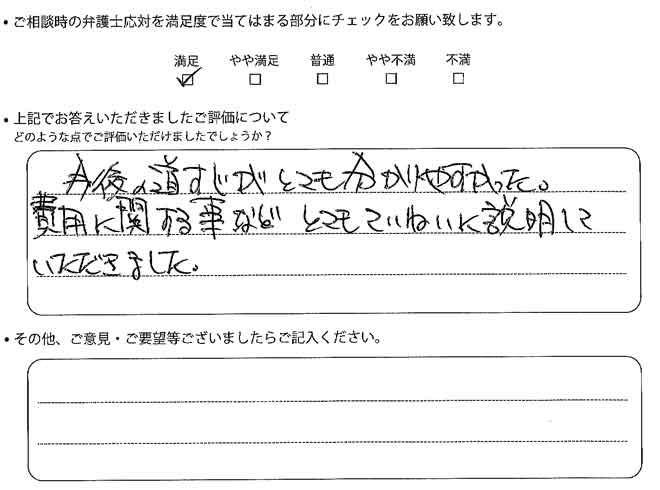 ・ご相談時の弁護士応対を満足度で当てはまる部分にチェックをお願い致します。
満足 やや満足 普通 やや不満 不満
・上記でお答えいただきましたご評価について
どのような点でご評価いただけましたでしょうか？
今後の道すじがとても分かりやすかった。
費用に関する事などとてもていねいに説明して
いただきました。
・その他、ご意見・ご要望等ございましたらご記入ください。